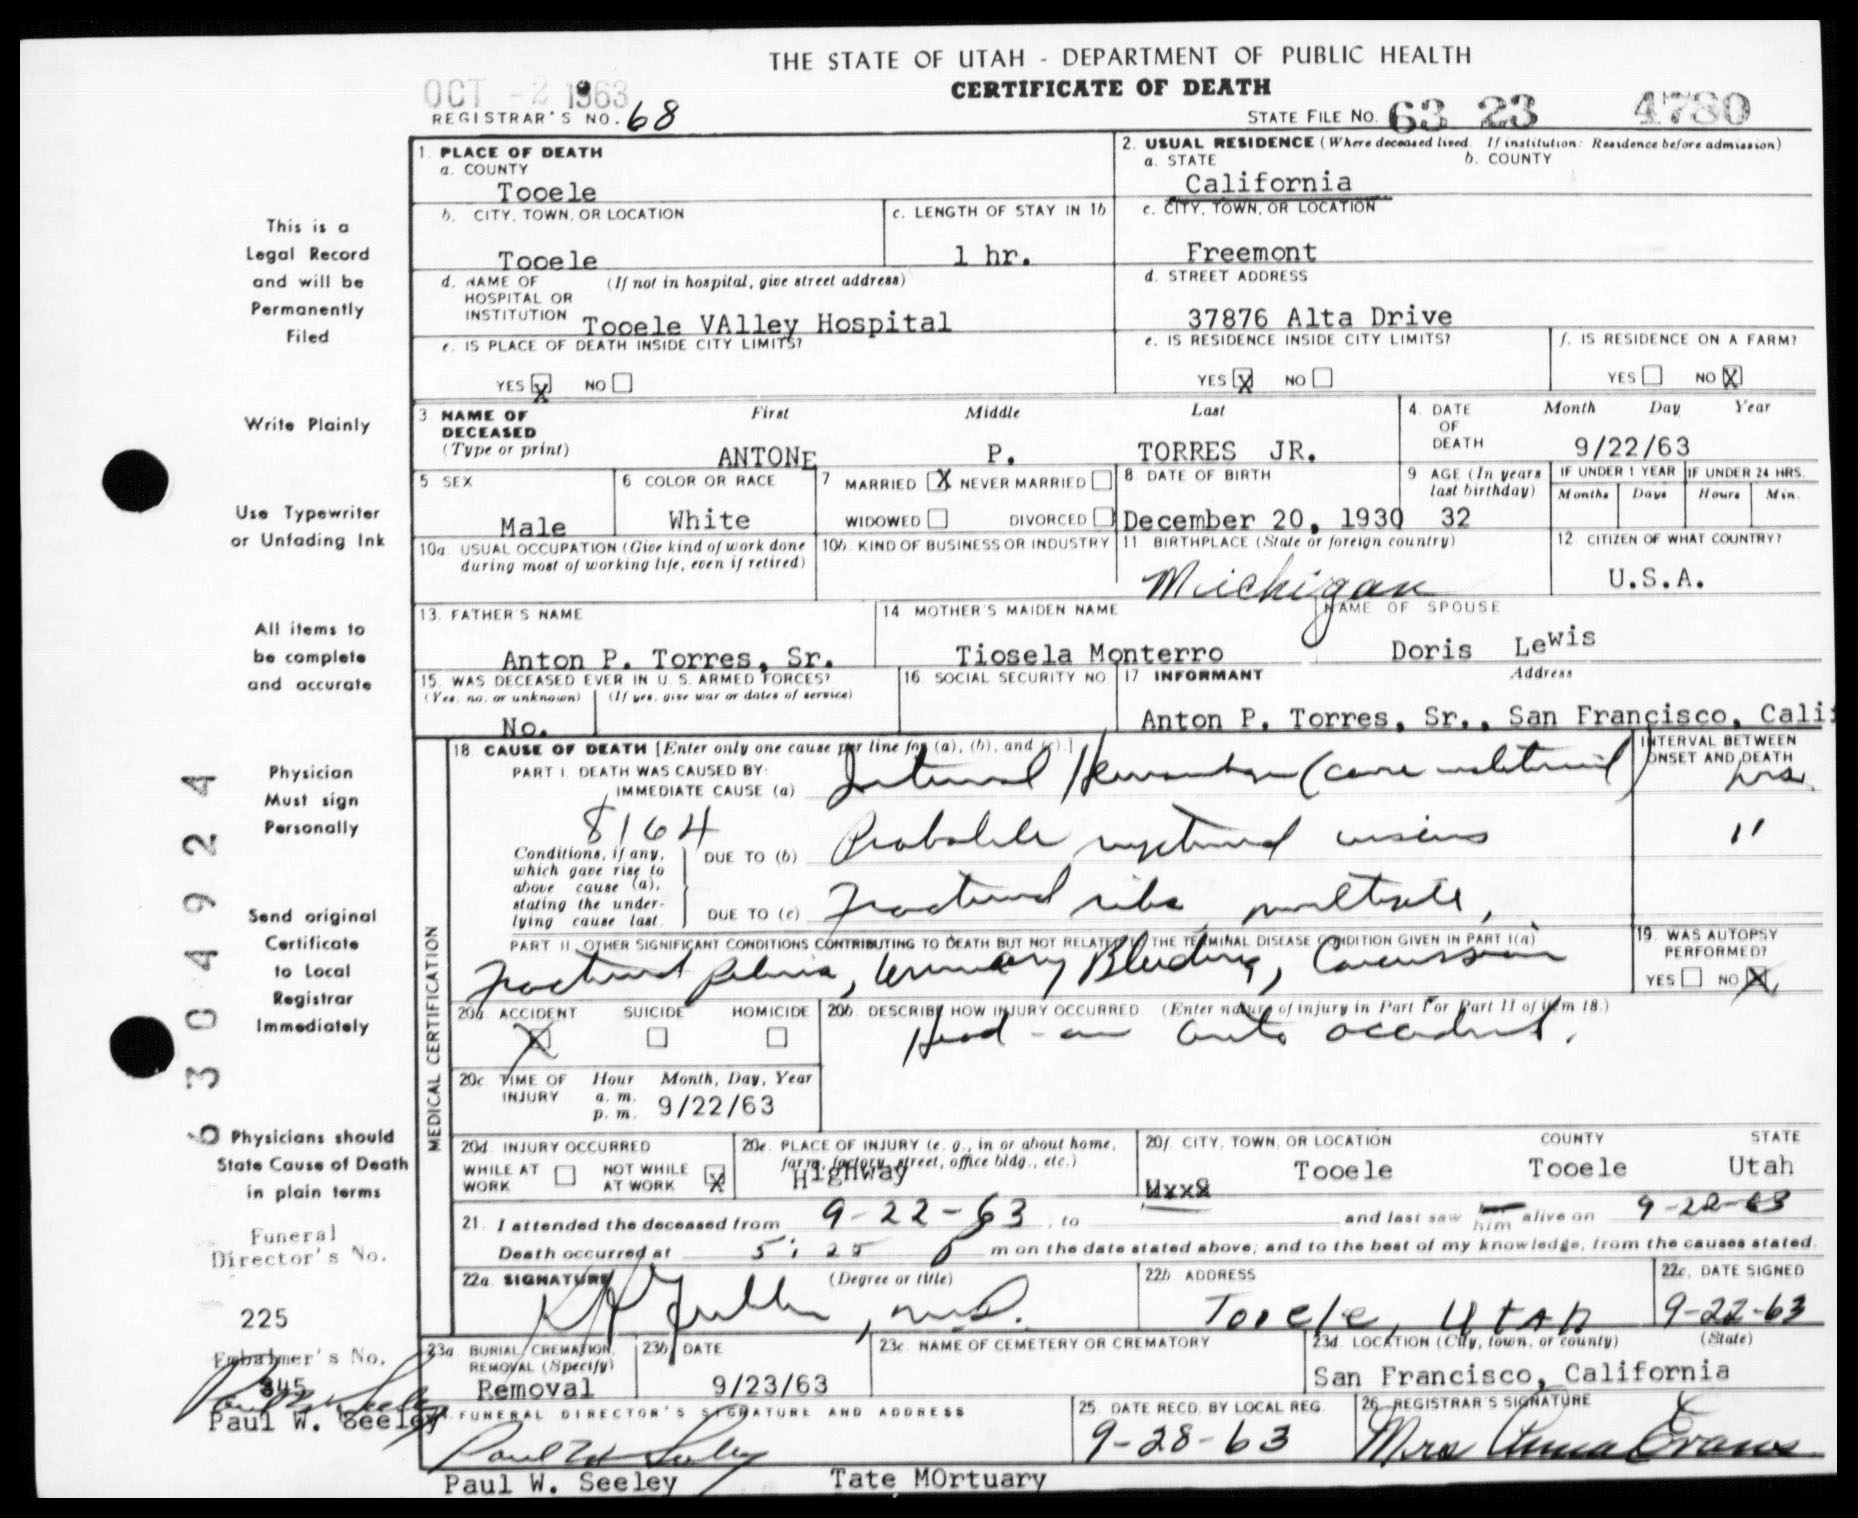 THE STATE OF UTAH - DEPARTMENT OF PUBLIC HEALTH
CERTIFICATE OF DEATH
OCT -2 1963
REGISTRAR'S NO. 68
STATE FILE NO. 63 23 4780
1. PLACE OF DEATH
a. COUNTY
Tooele
2. USUAL RESIDENCE (Where deceased lived. If institution: Residence before admission)
a. STATE b. COUNTY
California
b. CITY, TOWN, OR LOCATION
Tooele
c. LENGTH OF STAY IN 1b
1 hr.
c. CITY, TOWN, OR LOCATION
Freemont
d. NAME OF HOSPITAL OR INSTITUTION (If not in hospital, give street address)
Tooele VAlley Hospital
d. STREET ADDRESS
37876 Alta Drive
e. IS PLACE OF DEATH INSIDE CITY LIMITS?
YES X NO
e. IS RESIDENCE INSIDE CITY LIMITS?
YES X NO
f. IS RESIDENCE ON A FARM?
YES NO X
3 NAME OF DECEASED (Type or print)
First Middle Last
ANTONE P. TORRES JR.
4. DATE OF DEATH
Month Day Year
9/22/63
5 SEX
Male
6 COLOR OR RACE
White
7 MARRIED X NEVER MARRIED
WIDOWED DIVORCED
8 DATE OF BIRTH
December 20, 1930
9 AGE (In years last birthday)
32
IF UNDER 1 YEAR
Months Days
IF UNDER 24 HRS.
Hours Min.
10a USUAL OCCUPATION (Give kind of work done during most of working life, even if retired)
10b. KIND OF BUSINESS OR INDUSTRY
11 BIRTHPLACE (State or foreign country)
Michigan
12. CITIZEN OF WHAT COUNTRY?
U.S.A.
13. FATHER'S NAME
Anton P. Torres, Sr.
14 MOTHER'S MAIDEN NAME
Tiosela Monterro
NAME OF SPOUSE
Doris Lewis
15. WAS DECEASED EVER IN U.S. ARMED FORCES?
(Yes, no, or unknown) (If yes, give war or dates of service)
No.
16 SOCIAL SECURITY NO
17 INFORMANT Address
Anton P. Torres, Sr., San Francisco, Calif
MEDICAL CERTIFICATION
18. CAUSE OF DEATH [Enter only one cause per line for (a), (b), and (c).]
PART I. DEATH WAS CAUSED BY:
IMMEDIATE CAUSE (a) Internal
INTERVAL BETWEEN ONSET AND DEATH
hrs.
8164
Conditions, if any, which gave rise to above cause (a), stating the underlying cause last.
DUE TO (b) Probable ruptured
"
DUE TO (c) Fractured ribs, multiple,
PART II. OTHER SIGNIFICANT CONDITIONS CONTRIBUTING TO DEATH BUT NOT RELATED TO THE TERMINAL DISEASE CONDITION GIVEN IN PART I(a)
Fractured pelvis, Urinary Bleeding, Concussion
19. WAS AUTOPSY PERFORMED?
YES NO X
20a. ACCIDENT X SUICIDE HOMICIDE
20b. DESCRIBE HOW INJURY OCCURRED (Enter nature of injury in Part I or Part II of item 18.)
Head-on auto accident.
20c TIME OF INJURY
Hour Month, Day, Year
a. m.
p. m. 9/22/63
20d INJURY OCCURRED
WHILE AT WORK NOT WHILE AT WORK X
20e. PLACE OF INJURY (e. g., in or about home, farm, factory, street, office bldg., etc.)
Highway
20f. CITY, TOWN, OR LOCATION COUNTY STATE
Tooele Tooele Utah
21. I attended the deceased from 9-22-63, to and last saw him alive on 9-22-63
Death occurred at 5:25 p m on the date stated above; and to the best of my knowledge, from the causes stated.
22a SIGNATURE (Degree or title)
Fuller, M.D.
22b ADDRESS
Tooele, Utah
22c. DATE SIGNED
9-22-63
23a. BURIAL, CREMATION, REMOVAL (Specify)
Removal
23b DATE
9/23/63
23c NAME OF CEMETERY OR CREMATORY
23d LOCATION (City, town, or county) (State)
San Francisco, California
FUNERAL DIRECTOR'S SIGNATURE AND ADDRESS
Paul W Seeley
Paul W. Seeley Tate MOrtuary
25. DATE RECD. BY LOCAL REG.
9-28-63
26. REGISTRAR'S SIGNATURE
Mrs Anna Evans
This is a
Legal Record
and will be
Permanently
Filed
Write Plainly
Use Typewriter
or Unfading Ink
All items to
be complete
and accurate
Physician
Must sign
Personally
Send original
Certificate
to Local
Registrar
Immediately
Physicians should
State Cause of Death
in plain terms
Funeral
Director's No.
225
Embalmer's No.
845
Paul W Seeley
Paul W. Seeley
6304924